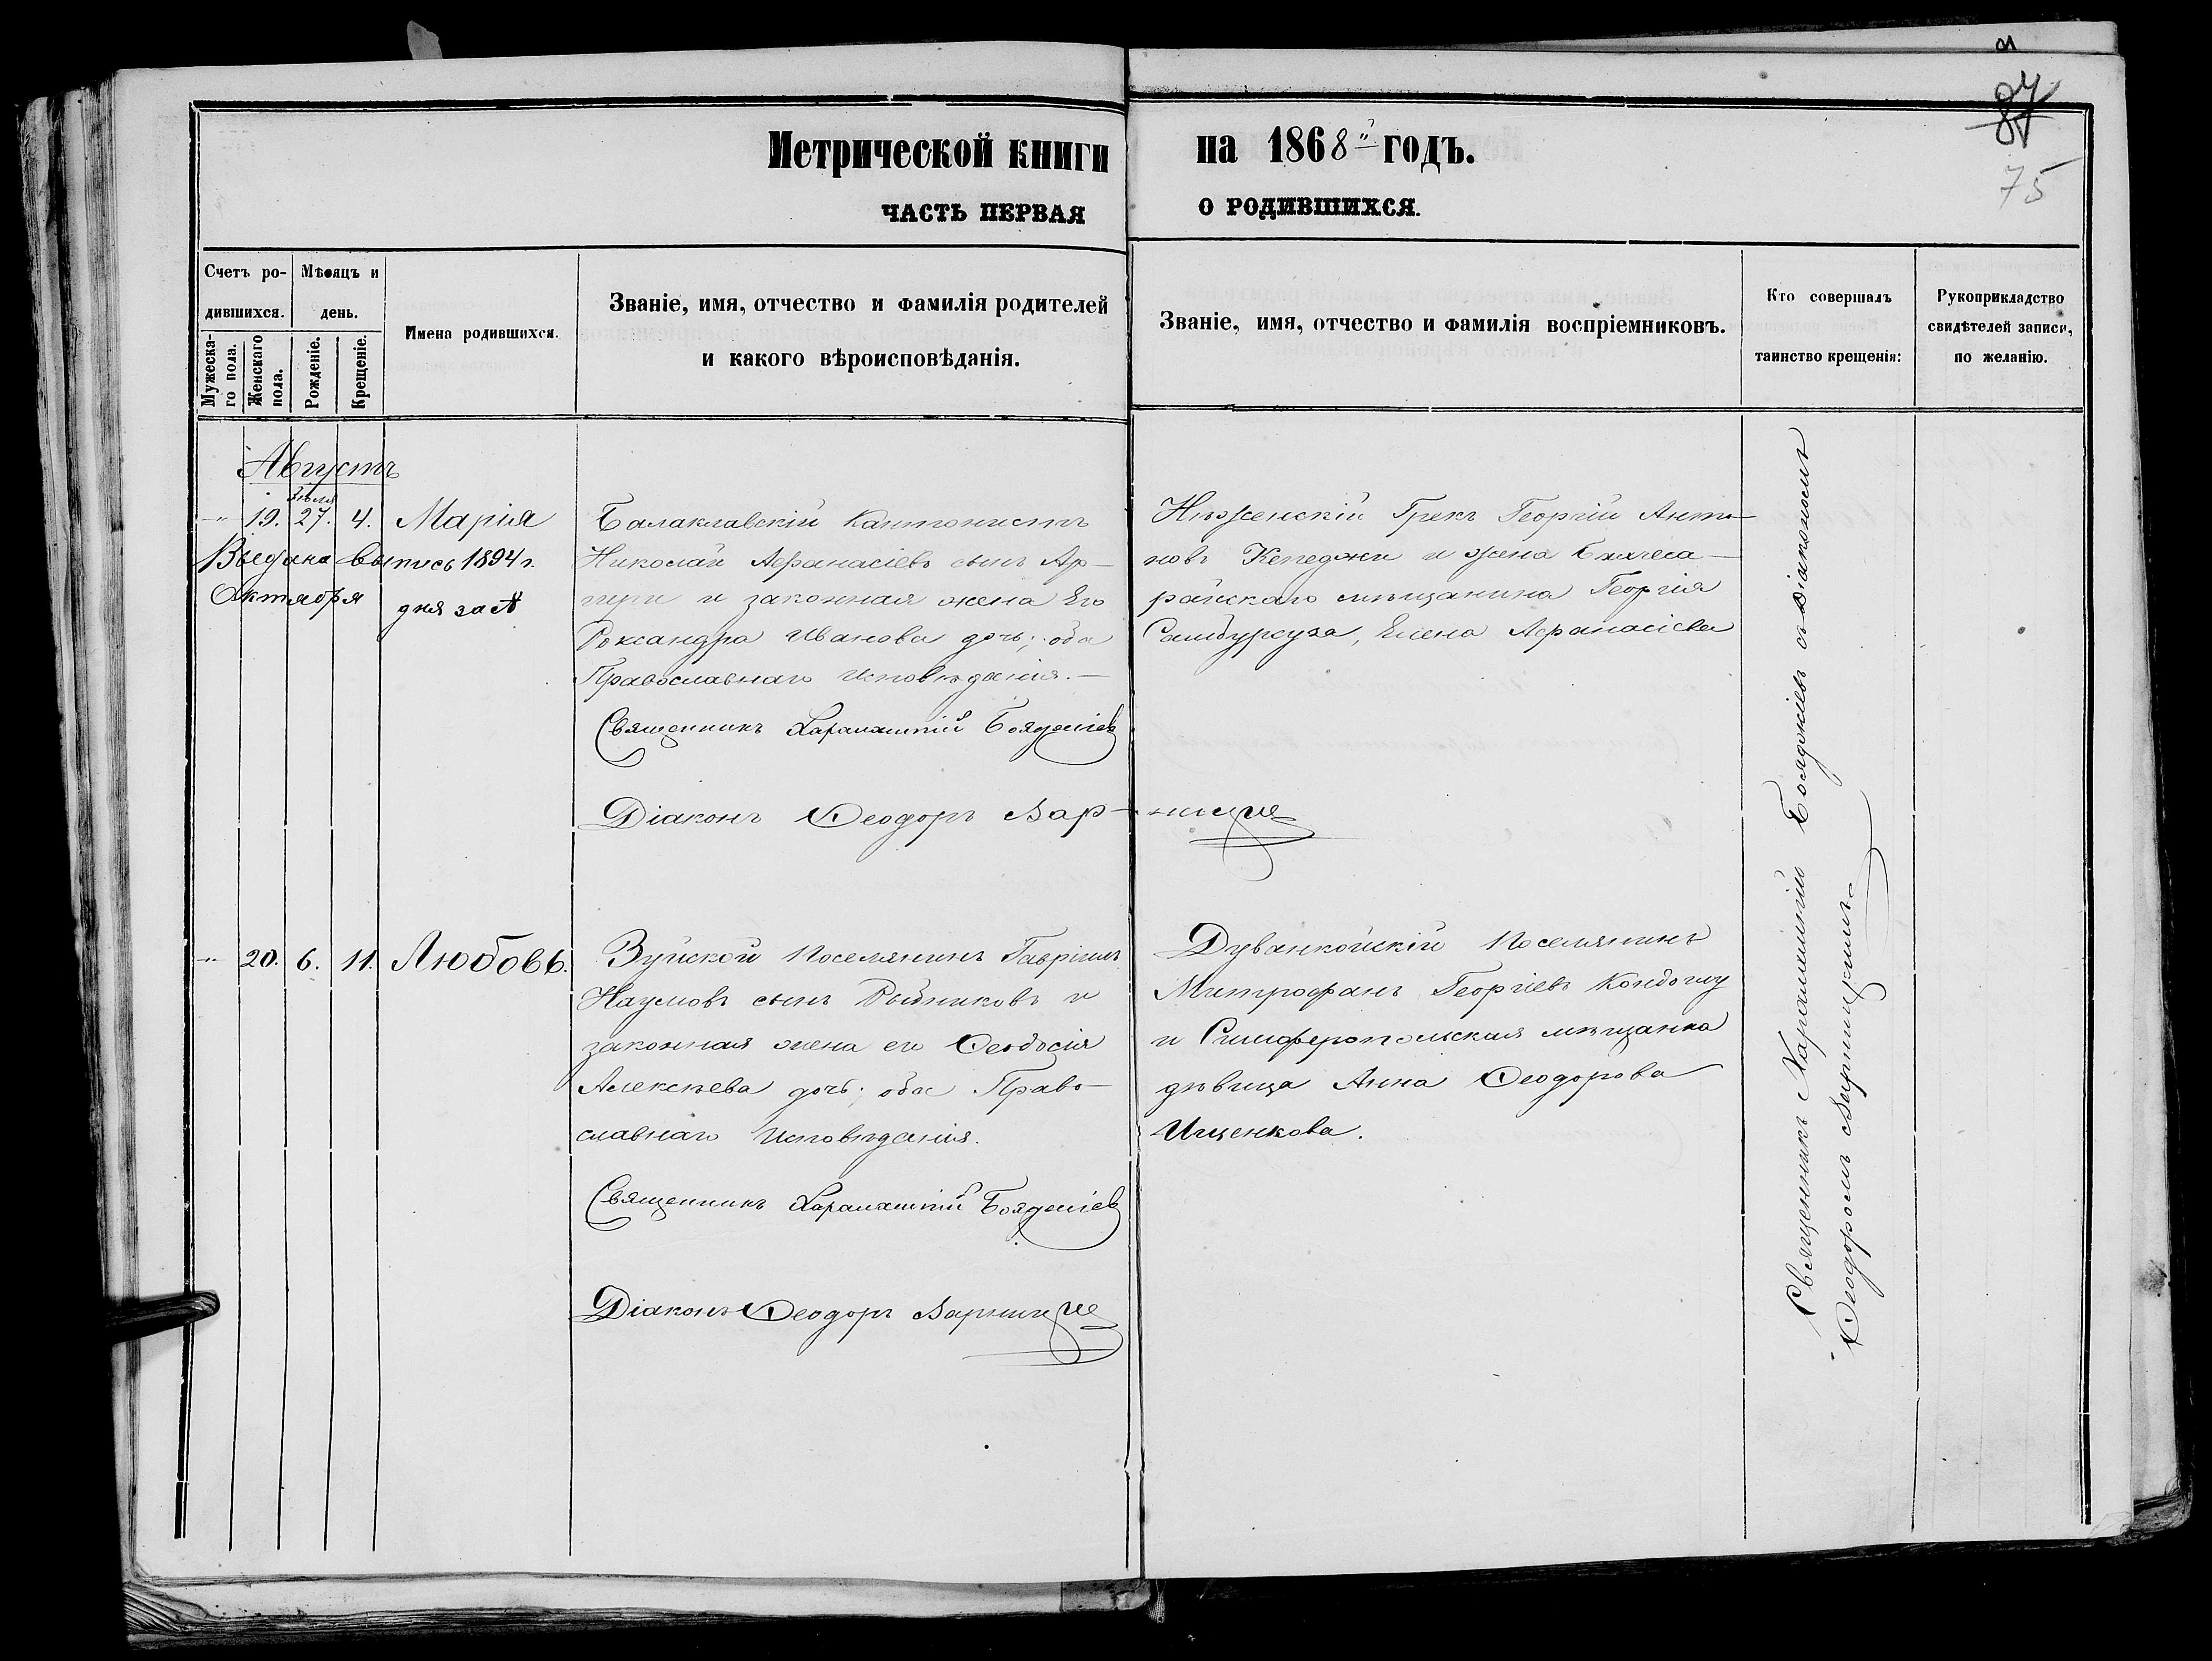 87
75
Метрической книги на 1868й годъ.
ЧАСТЬ ПЕРВАЯ О РОДИВШИХСЯ.
Счетъ ро-
дившихся.
Мужеска-
го пола.
Женскаго
пола.
Мѣсяцъ и
день.
Рожденіе.
Крещеніе.
Имена родившихся.
Званіе, имя, отчество и фамилія родителей
и какого вѣроисповѣданія.
Званіе, имя, отчество и фамилія воспріемниковъ.
Кто совершалъ
таинство крещенія:
Рукоприкладство
свидѣтелей записи,
по желанію.
Августъ
Іюля
19. 27. 4. Марія
Выдана выпись 1894 г.
Октября дня за №
Балаклавскій Кантонистъ
Николай Афанасіевъ сынъ Ар-
гири и законная жена Его
Роксандра Иванова дочь; оба
Православнаго Исповѣданія.
Священникъ Харалампій
Діаконъ Ѳеодоръ Вар-ницкій
Нѣженскій Грекъ Георгій Анто-
новъ Кепеджи и жена Бахчеса-
райскаго мѣщанина Георгія
Елена Афанасіева
20. 6. 11. Любовь.
Зуйской Поселянинъ Гавріилъ
Наумовъ сынъ Рыбниковъ и
законная жена его Ѳеодосія
Алексѣева дочь; оба Право-
славнаго Исповѣданія.
Священникъ Харалампій
Діаконъ Ѳеодоръ Варницкій
Дуванкойскій Поселянинъ
Митрофанъ Георгіевъ
и Симферопольская мѣщанка
дѣвица Анна Ѳеодорова
Ищенкова.
Священникъ Харалампій съ Діакономъ
Ѳеодоромъ Варницкимъ